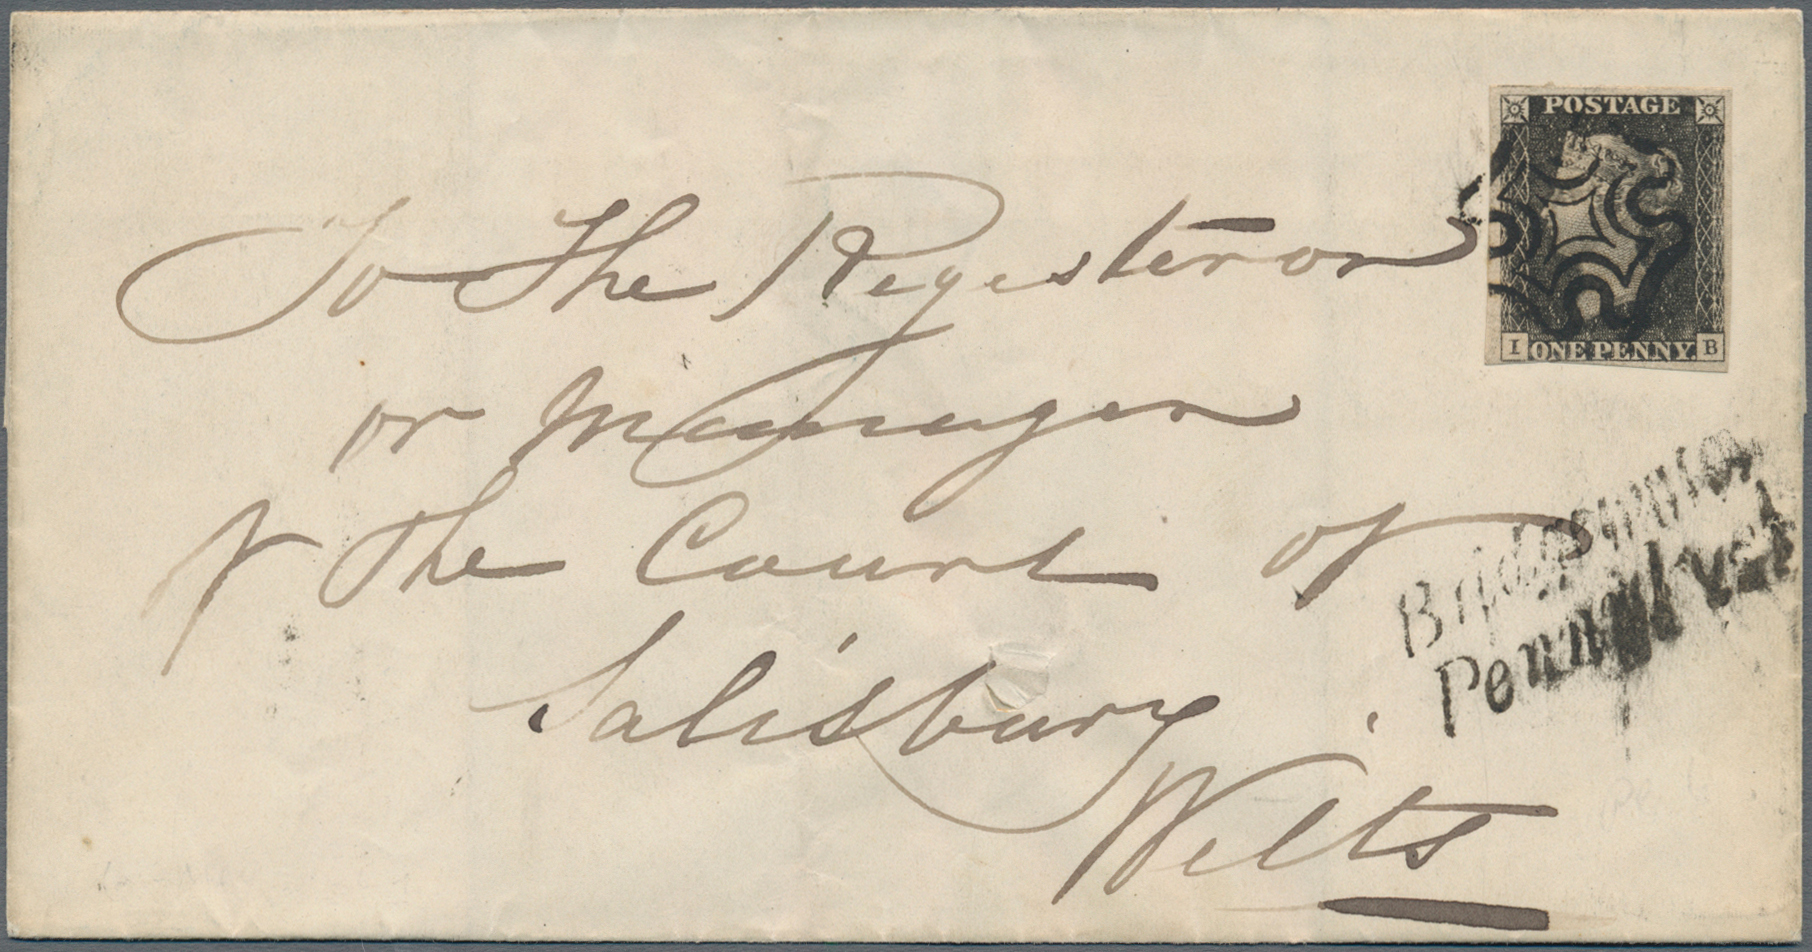 POSTAGE
I ONE PENNY. B
To The Registeror
or Manager
of the Court of
Salisbury
Wilts
Bridgewater
Penny Post